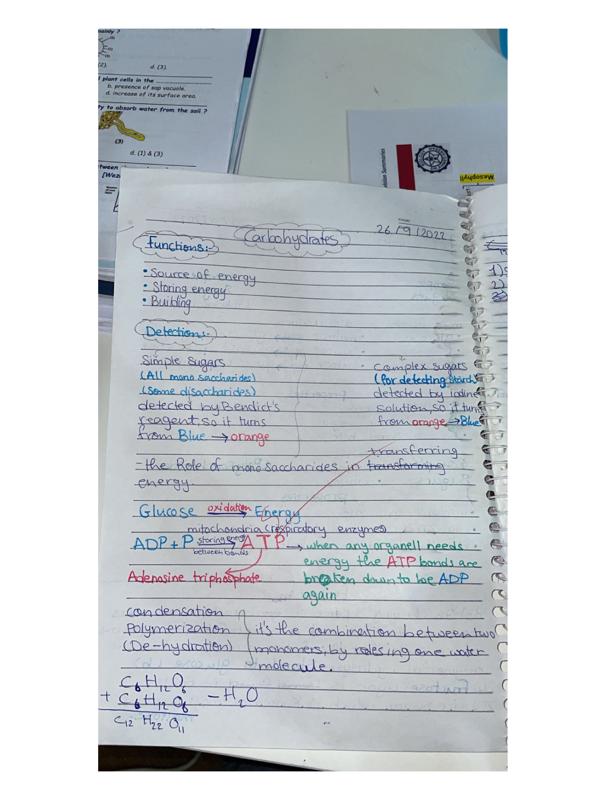 mainly ?
(2).
d. (3).
l plant cells in the
b. presence of sap vacuole.
d. increase of its surface area.
ty to absorb water from the soil ?
(3)
d. (1) & (3)
tween
Summaries
Mesophyll
Carbohydrates
26/9/2022
Functions:-
• Source of energy
• Storing energy
• Building
Detection:-
Simple sugars
(All mono saccharides)
(Some disaccharides)
detected by Bendict's
reagent, so it turns
from Blue → orange
Complex sugars
(for detecting Starch)
detected by iodine
solution, so it turn
from orange → Blue
transferring
- the Role of mono saccharides in transforming
energy.
Glucose oxidation Energy
mitochondria (respiratory enzymes)
ADP + P storing energy between bonds ATP → when any organell needs
energy the ATP bonds are
broken down to be ADP
again
Adenosine triphosphate
condensation
Polymerization
(De-hydration)
it's the combination between two
monomers, by rolesing one water
molecule.
C6 H12 O6
+ C6 H12 O6 - H2O
C12 H22 O11
1)
2)